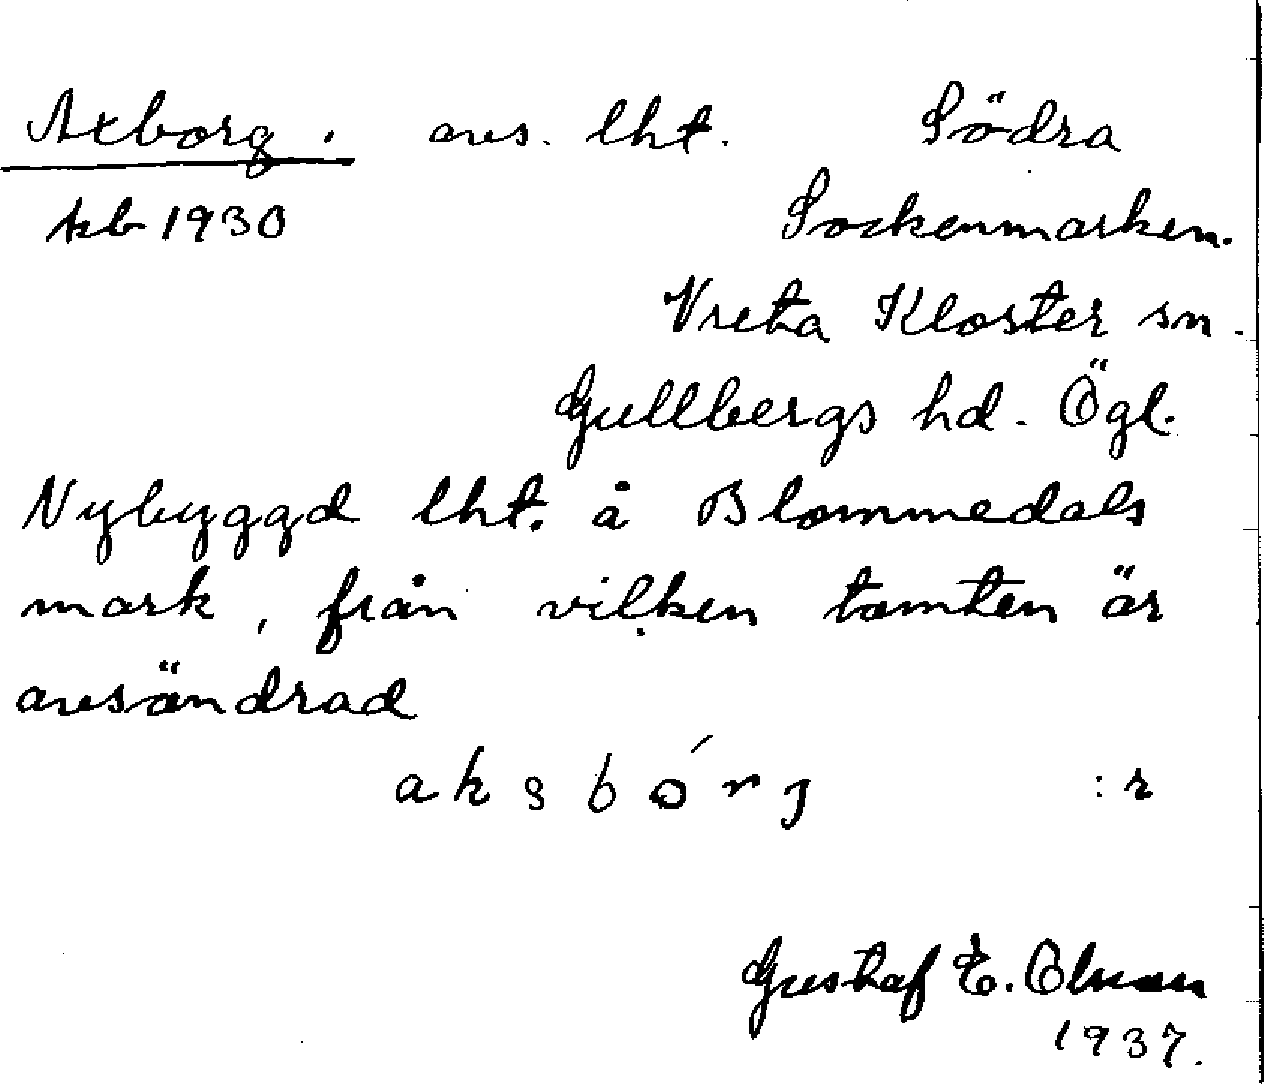 Axborg. avs. lht. Södra
kb 1930 Sockenmarken.
Vreta Kloster sn.
Gullbergs hd. Ögl.
Nybyggd lht. å Blommedals
mark, från vilken tomten är
avsöndrad
aksbórj :r
Gustaf E. Olsson
1937.